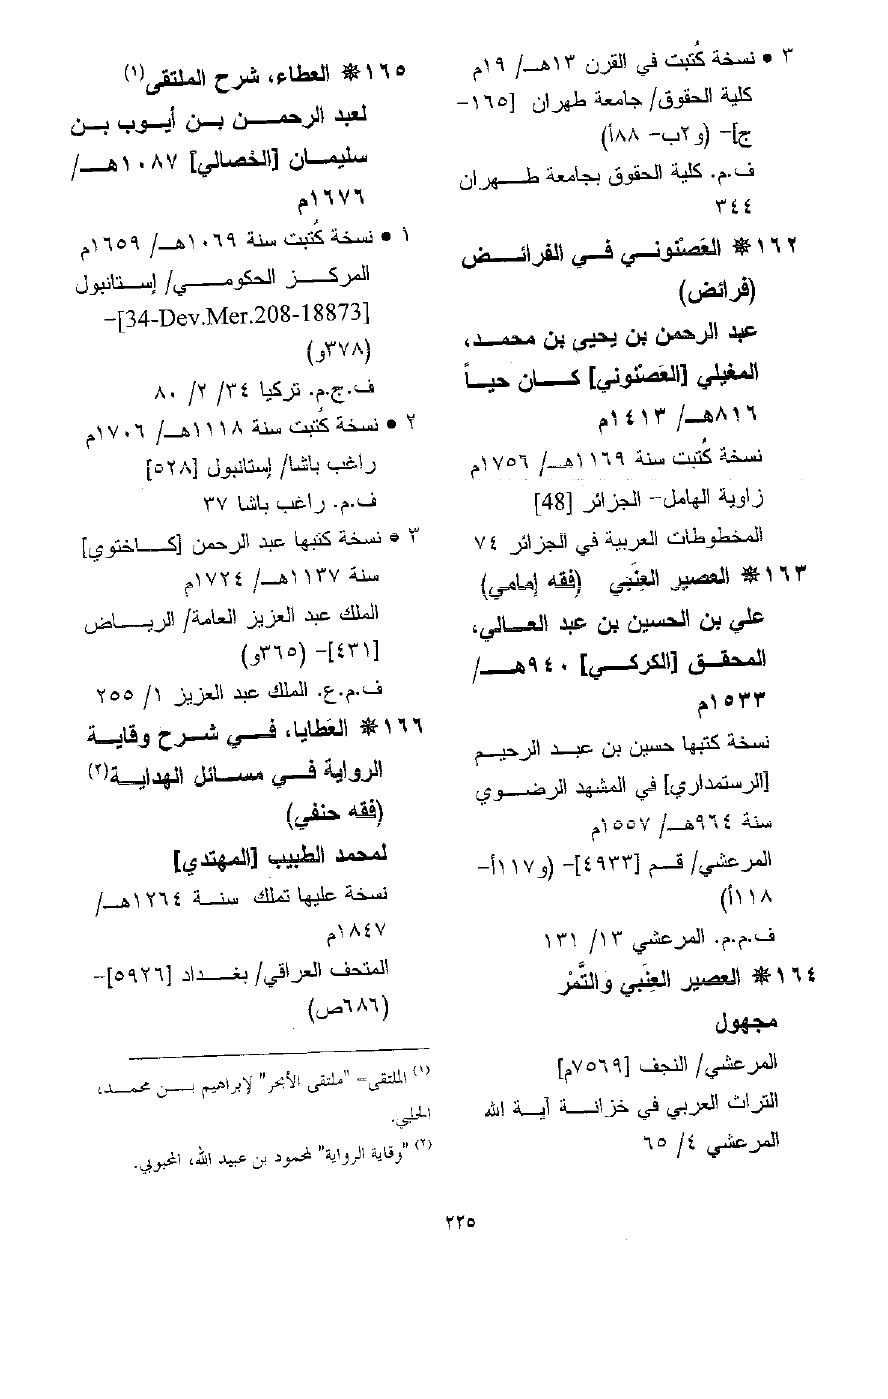 ٣ • نسخة كُتبت في القرن ١٣هـ/ ١٩م
كلية الحقوق/ جامعة طهران [١٦٥-
ج]- (و٢ب- ٨٨أ)
ف.م. كلية الحقوق بجامعة طهران
٣٤٤
١٦٢ * العَصنُوني في الفرائض
(فرائض)
عبد الرحمن بن يحيى بن محمد،
المغيلي [العَصنُوني] كان حياً
٨١٦هـ/ ١٤١٣م
نسخة كُتبت سنة ١١٦٩هـ/ ١٧٥٦م
زاوية الهامل- الجزائر [48]
المخطوطات العربية في الجزائر ٧٤
١٦٣ * العصير العِنَبي (فقه إمامي)
علي بن الحسين بن عبد العالي،
المحقق [الكركي] ٩٤٠هـ/
١٥٣٣م
نسخة كتبها حسين بن عبد الرحيم
[الرستمداري] في المشهد الرضوي
سنة ٩٦٤هـ/ ١٥٥٧م
المرعشي/ قم [٤٩٣٣]- (و١١٧أ-
١١٨أ)
ف.م.م. المرعشي ١٣/ ١٣١
١٦٤ * العصير العِنَبي وَالتَّمْرْ
مجهول
المرعشي/ النجف [٧٥٦٩م]
التراث العربي في خزانة آية الله
المرعشي ٤/ ٦٥
١٦٥ * العطاء، شرح الملتقى(١)
لعبد الرحمن بن أيوب بن
سليمان [الخصالي] ١٠٨٧هـ/
١٦٧٦م
١ • نسخة كُتبت سنة ١٠٦٩هـ/ ١٦٥٩م
المركز الحكومي/ إستانبول
[34-Dev.Mer.208-18873]-
(٣٧٨و)
ف.ج.م. تركيا ٣٤/ ٢/ ٨٠
٢ • نسخة كُتبت سنة ١١١٨هـ/ ١٧٠٦م
راغب باشا/ إستانبول [٥٢٨]
ف.م. راغب باشا ٣٧
٣ • نسخة كتبها عبد الرحمن [كاختوي]
سنة ١١٣٧هـ/ ١٧٢٤م
الملك عبد العزيز العامة/ الرياض
[٤٣١]- (٣٦٥و)
ف.م.ع. الملك عبد العزيز ١/ ٢٥٥
١٦٦ * العَطايا، في شرح وقاية
الرواية في مسائل الهداية(٢)
(فقه حنفي)
لمحمد الطبيب [المهتدي]
نسخة عليها تملك سنة ١٢٦٤هـ/
١٨٤٧م
المتحف العراقي/ بغداد [٥٩٢٦]-
(٦٨٦ص)
(١) الملتقى= "ملتقى الأبحر" لإبراهيم بن محمد،
الحلبي.
(٢) "وقاية الرواية" لمحمود بن عبيد الله، المحبوبي.
٢٢٥